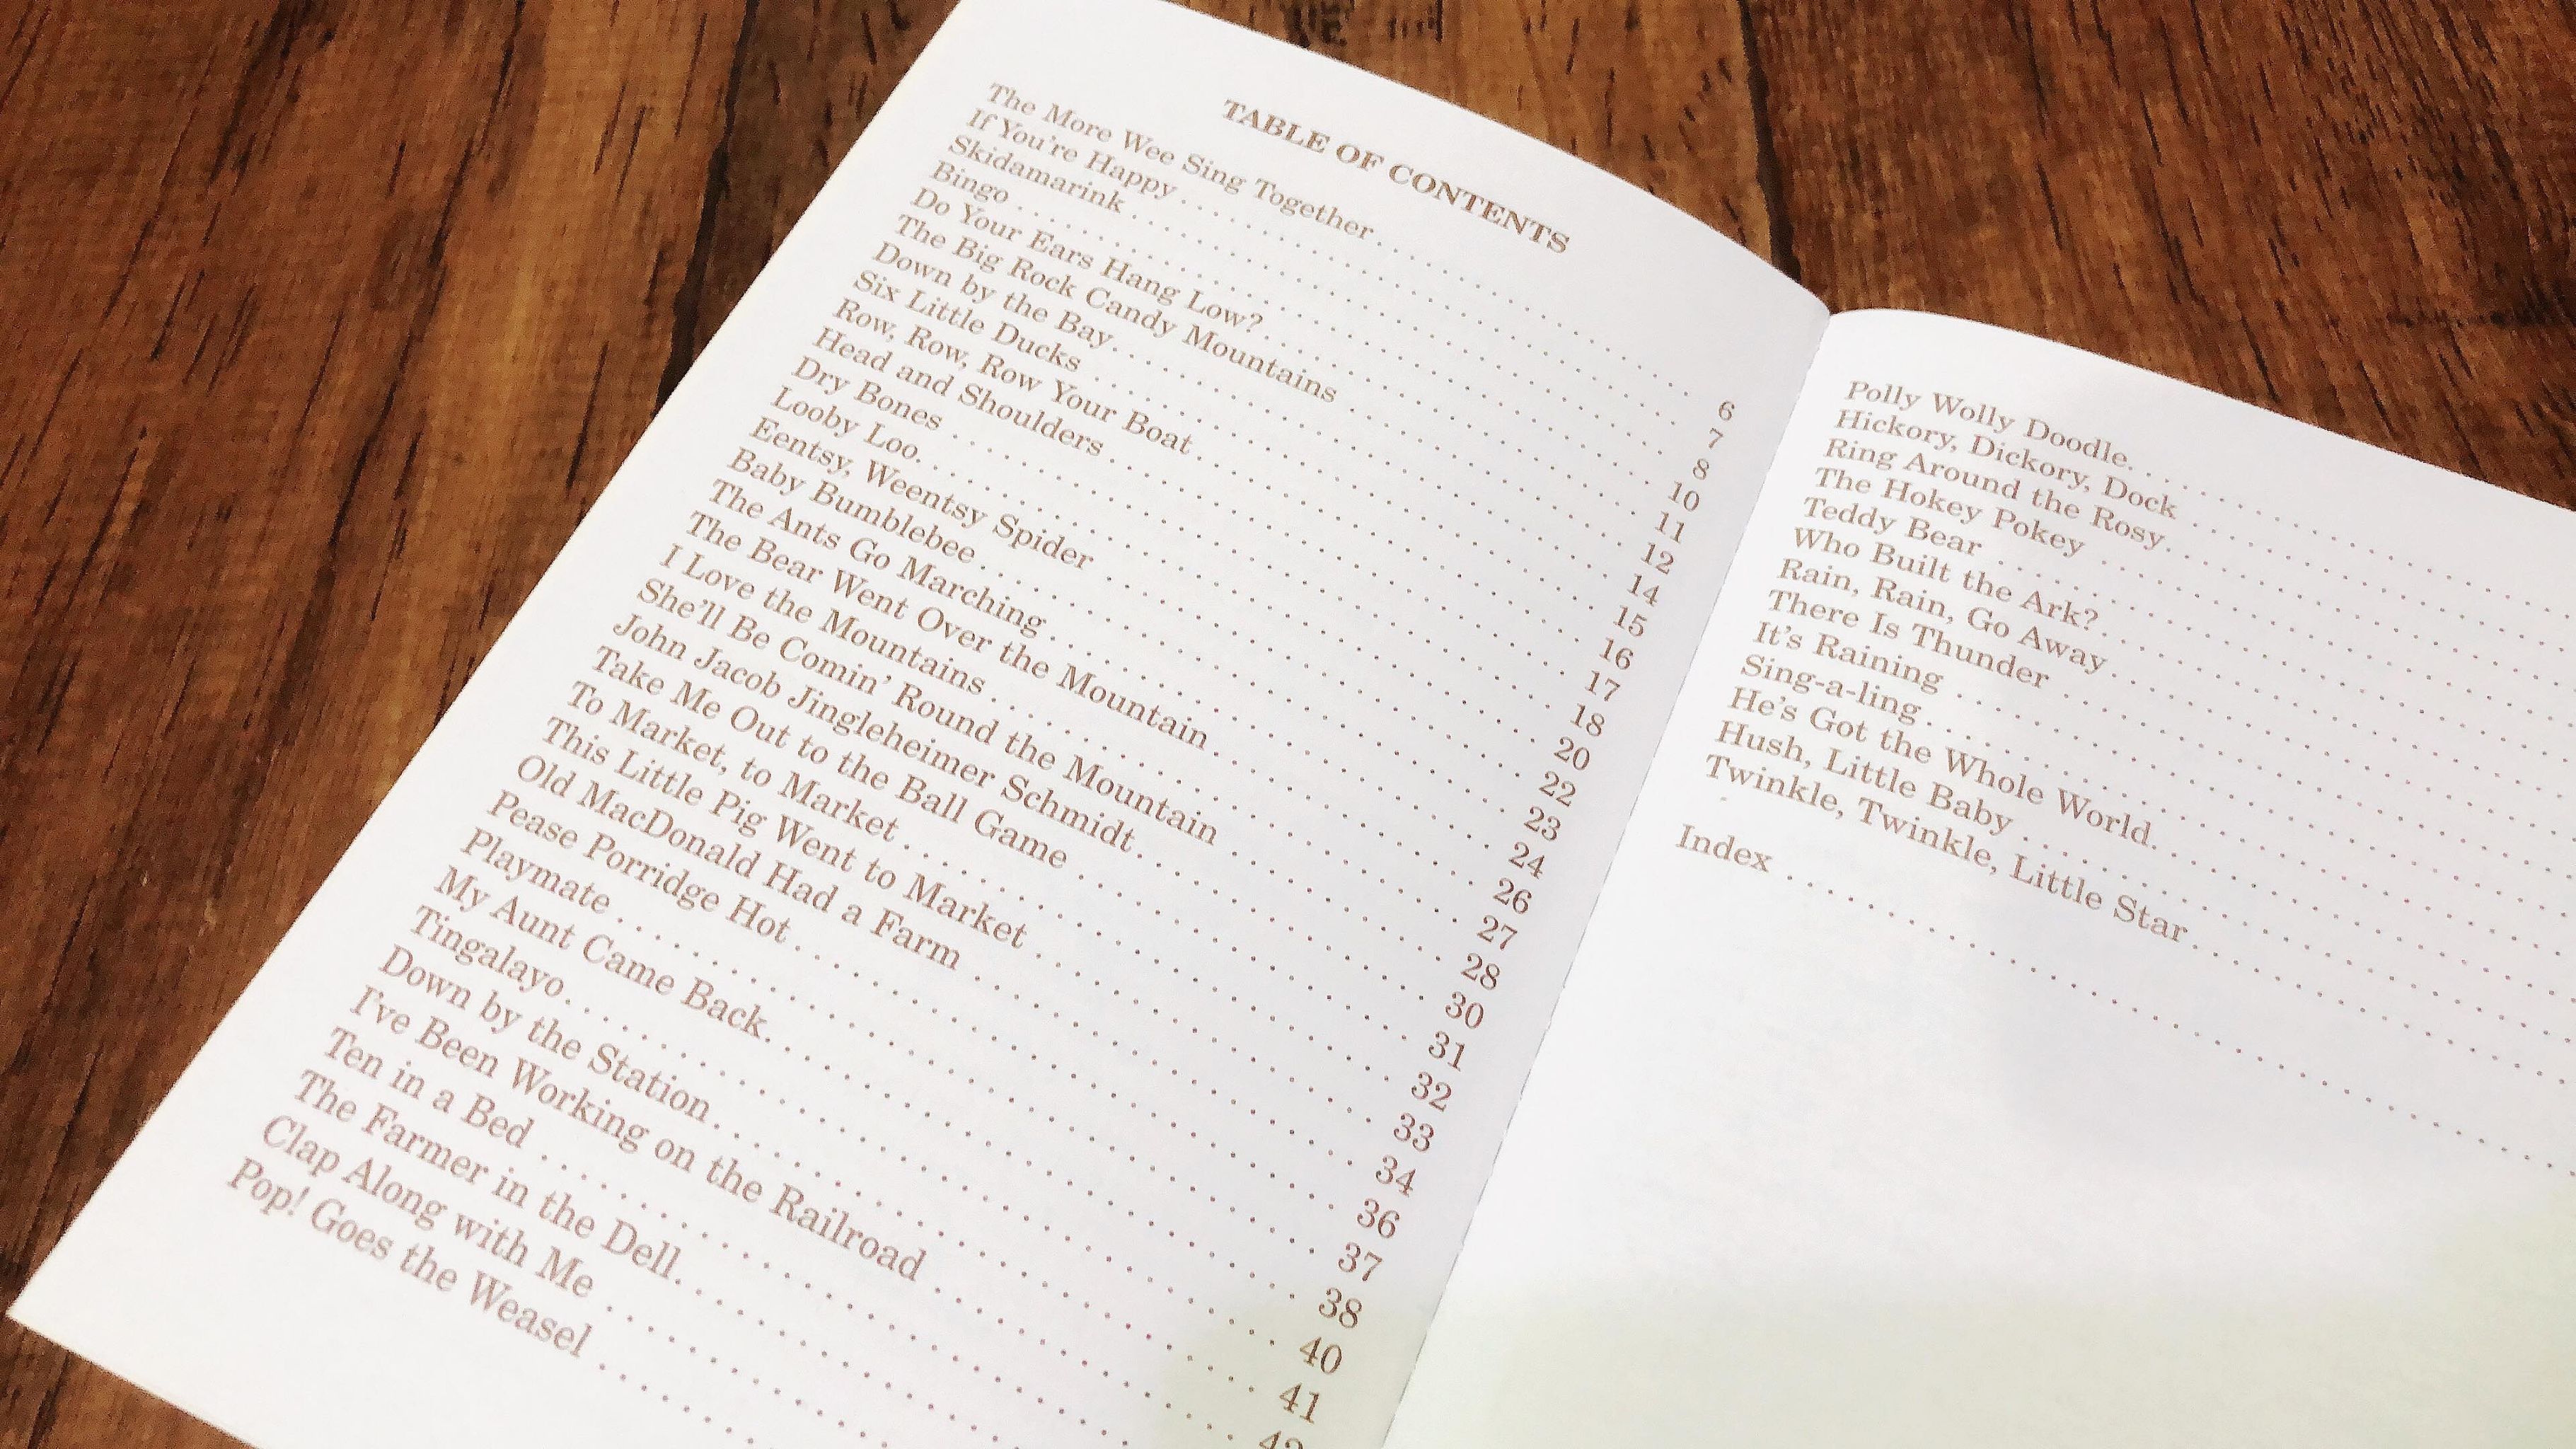 TABLE OF CONTENTS
The More Wee Sing Together . . . 6
If You're Happy . . . 7
Skidamarink . . . 8
Bingo . . . 10
Do Your Ears Hang Low? . . . 11
The Big Rock Candy Mountains . . . 12
Down by the Bay . . . 14
Six Little Ducks . . . 15
Row, Row, Row Your Boat . . . 16
Head and Shoulders . . . 17
Dry Bones . . . 18
Looby Loo . . . 20
Eentsy, Weentsy Spider . . . 22
Baby Bumblebee . . . 23
The Ants Go Marching . . . 24
The Bear Went Over the Mountain . . . 26
I Love the Mountains . . . 27
She'll Be Comin' Round the Mountain . . . 28
John Jacob Jingleheimer Schmidt . . . 30
Take Me Out to the Ball Game . . . 31
To Market, to Market . . . 32
This Little Pig Went to Market . . . 33
Old MacDonald Had a Farm . . . 34
Pease Porridge Hot . . . 36
Playmate . . . 37
My Aunt Came Back . . . 38
Tingalayo . . . 40
Down by the Station . . . 41
I've Been Working on the Railroad . . .
Ten in a Bed . . .
The Farmer in the Dell . . .
Clap Along with Me . . .
Pop! Goes the Weasel . . .
Polly Wolly Doodle . . .
Hickory, Dickory, Dock . . .
Ring Around the Rosy . . .
The Hokey Pokey . . .
Teddy Bear . . .
Who Built the Ark? . . .
Rain, Rain, Go Away . . .
There Is Thunder . . .
It's Raining . . .
Sing-a-ling . . .
He's Got the Whole World . . .
Hush, Little Baby . . .
Twinkle, Twinkle, Little Star . . .
Index . . .